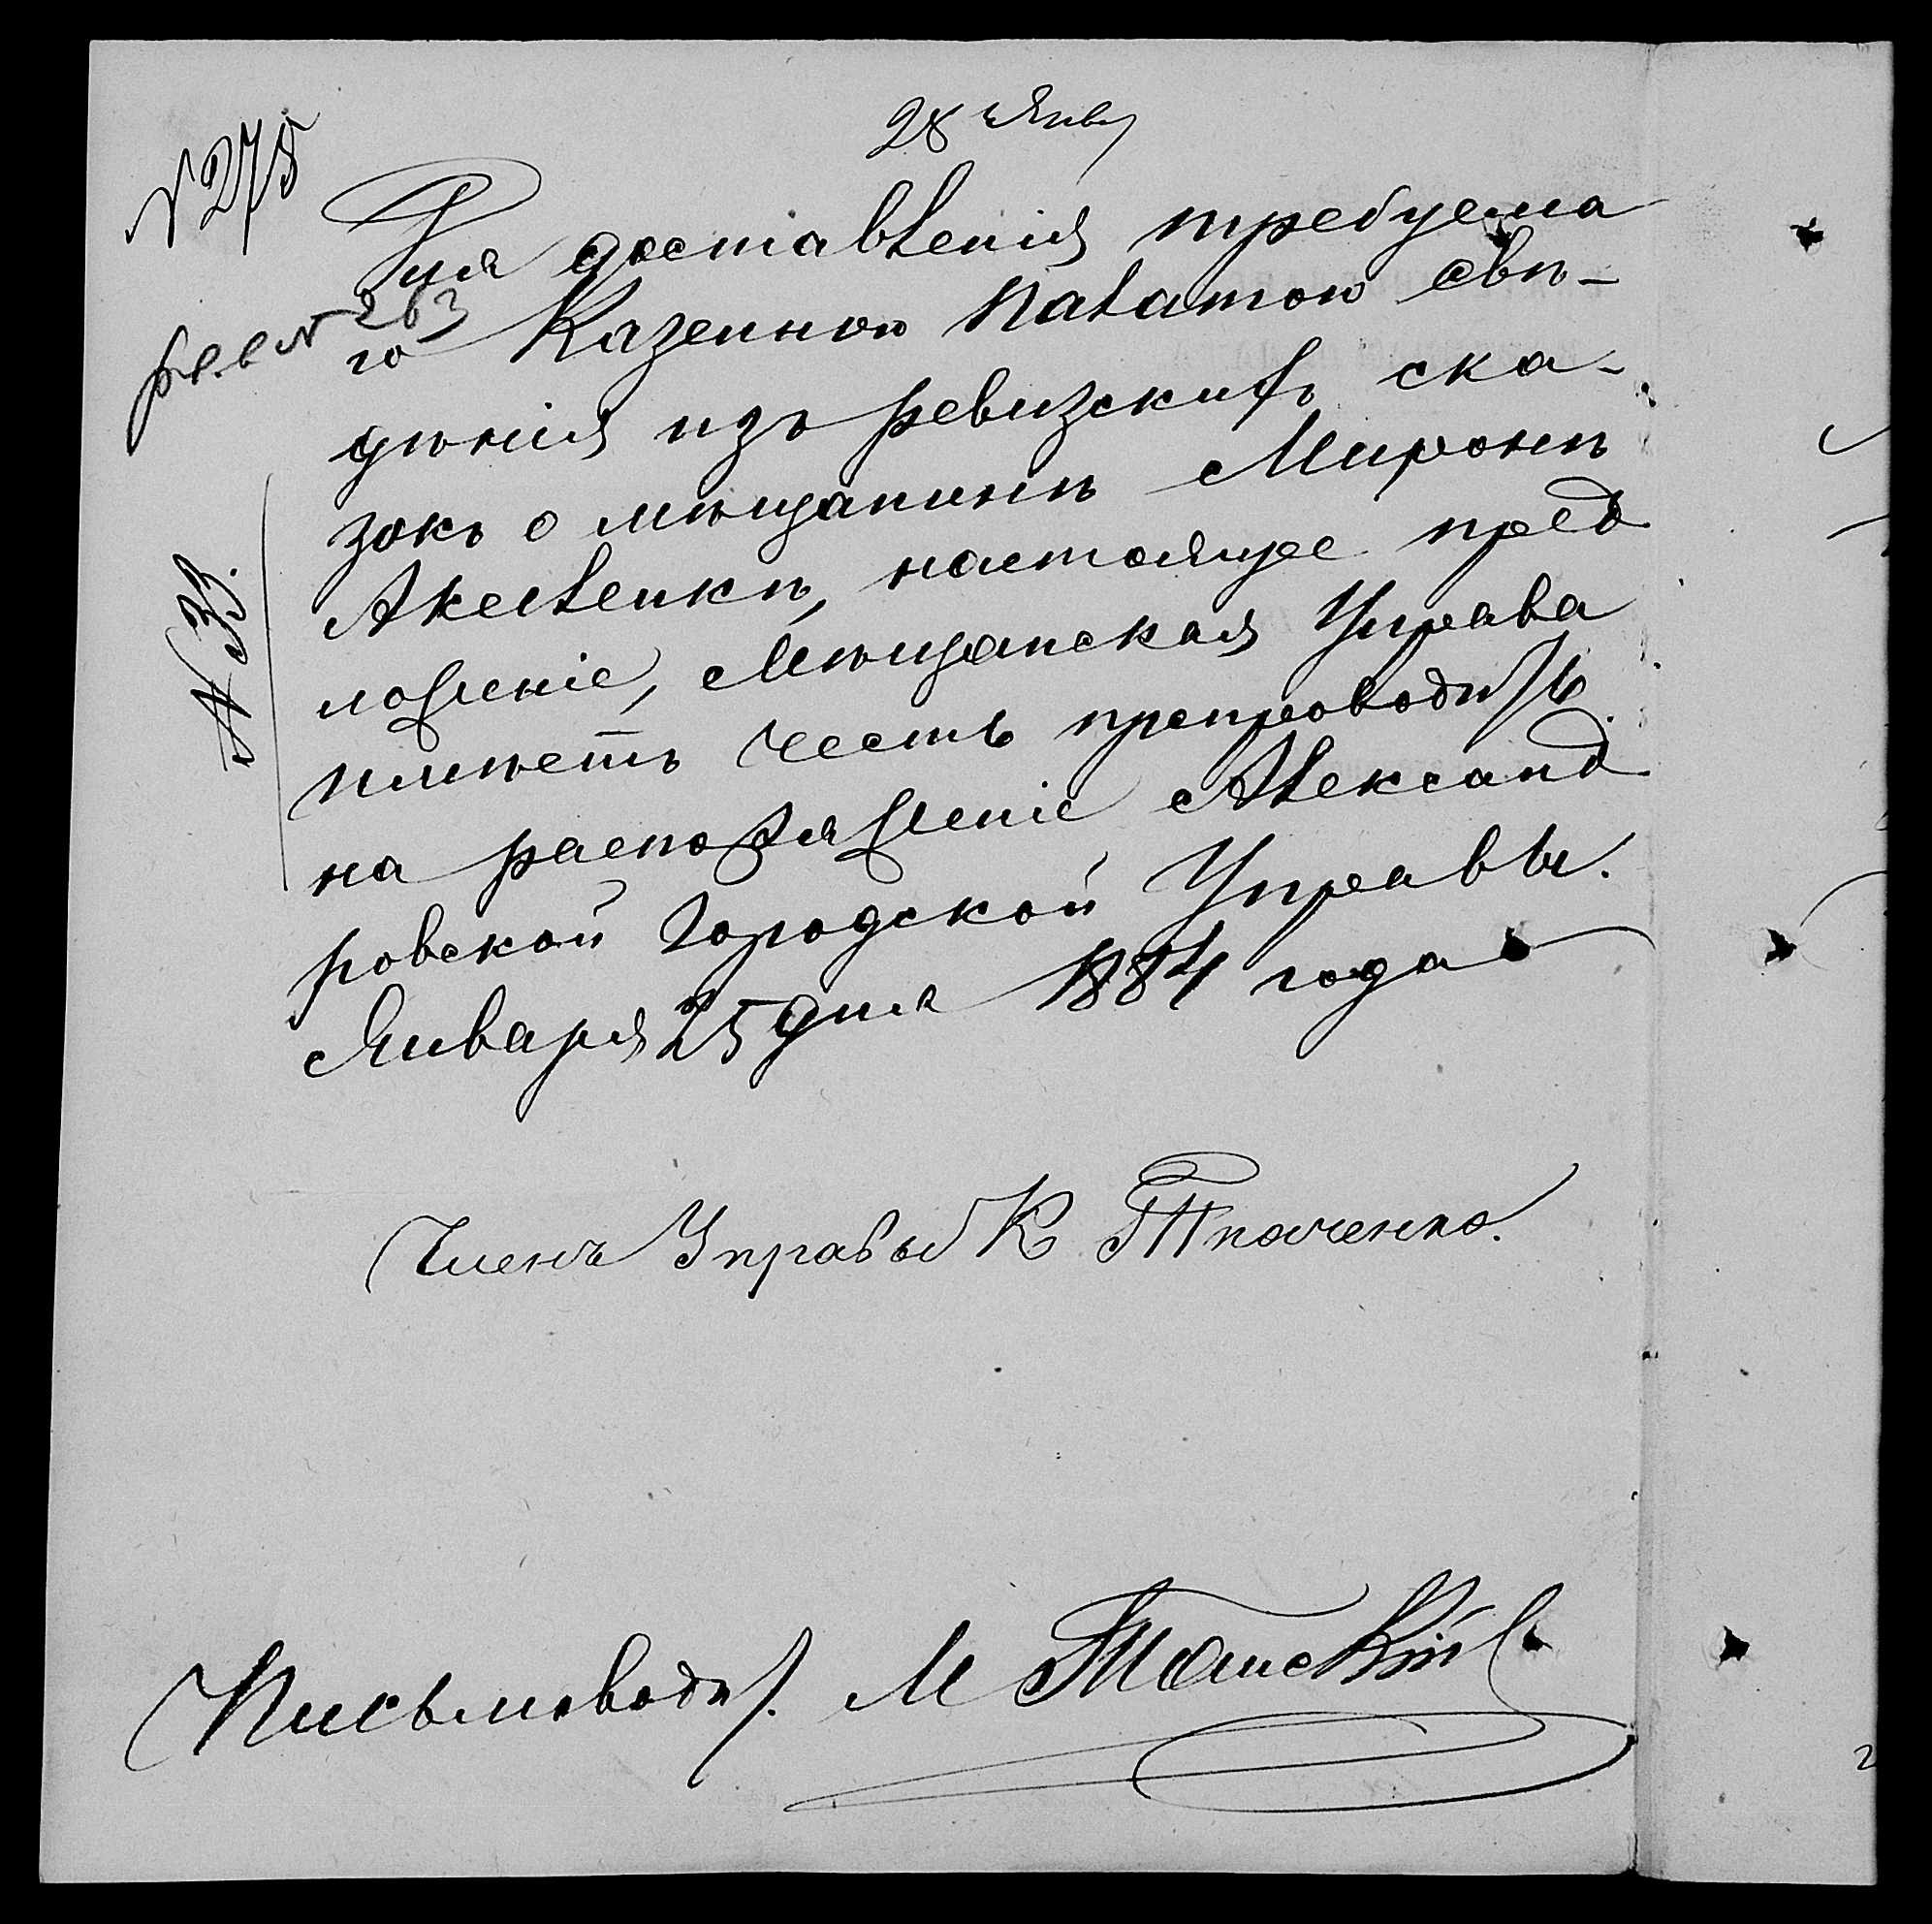 28 Янв
№ 278
Для доставленія требуема
го Казенною Палатою свѣ-
№ 263
дѣнія изъ ревизскихъ ска-
зокъ о мѣщанинѣ Миронѣ
настоящее пред
№ 33.
ложеніе, Мѣщанская Управа
имѣетъ честь препроводить
на распоряженіе Александ
ровской Городской Управы.
Января 25 дня 1884 года
Членъ Управы К Ткаченко.
Письмоводит. М